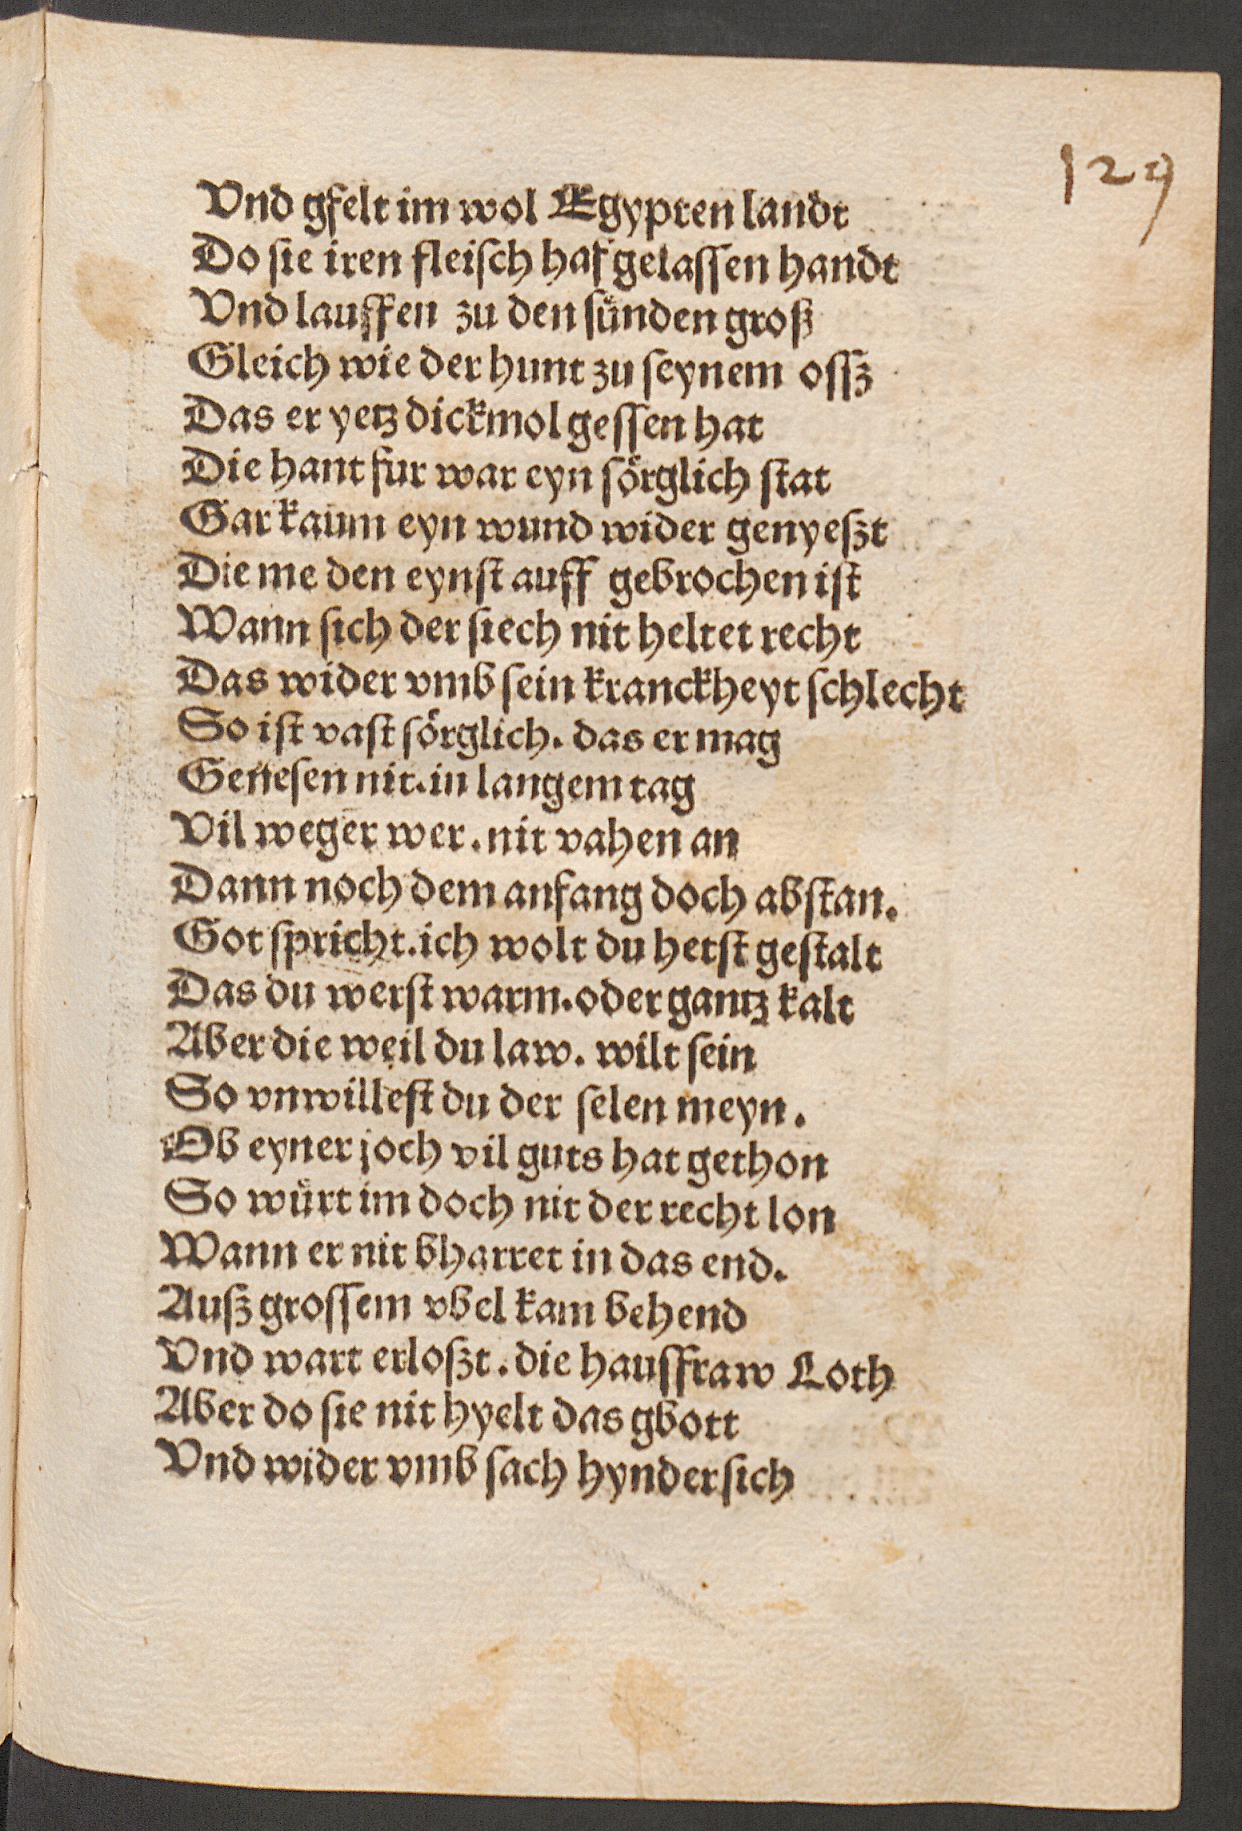 129
Vnd gfelt im wol Egypten landt
Do sie iren fleisch haf gelassen handt
Vnd lauffen zu den sünden groß
Gleich wie der hunt zu seynem ossz
Das er yetz dickmol gessen hat
Die hant fur war eyn sörglich stat
Gar kaum eyn wund wider genyeszt
Die me den eynst auff gebrochen ist
Wann sich der siech nit heltet recht
Das wider vmb sein kranckheyt schlecht
So ist vast sörglich. das er mag
Genesen nit. in langem tag
Vil weger wer. nit vahen an
Dann noch dem anfang doch abstan.
Got spricht. ich wolt du hetst gestalt
Das du werst warm. oder gantz kalt
Aber die weil du law. wilt sein
So vnwillest du der selen meyn.
Ob eyner joch vil guts hat gethon
So würt im doch nit der recht lon
Wann er nit bharret in das end.
Ausz grossem vbel kam behend
Vnd wart erloszt. die hausfraw Loth
Aber do sie nit hyelt das gbott
Vnd wider vmb sach hyndersich